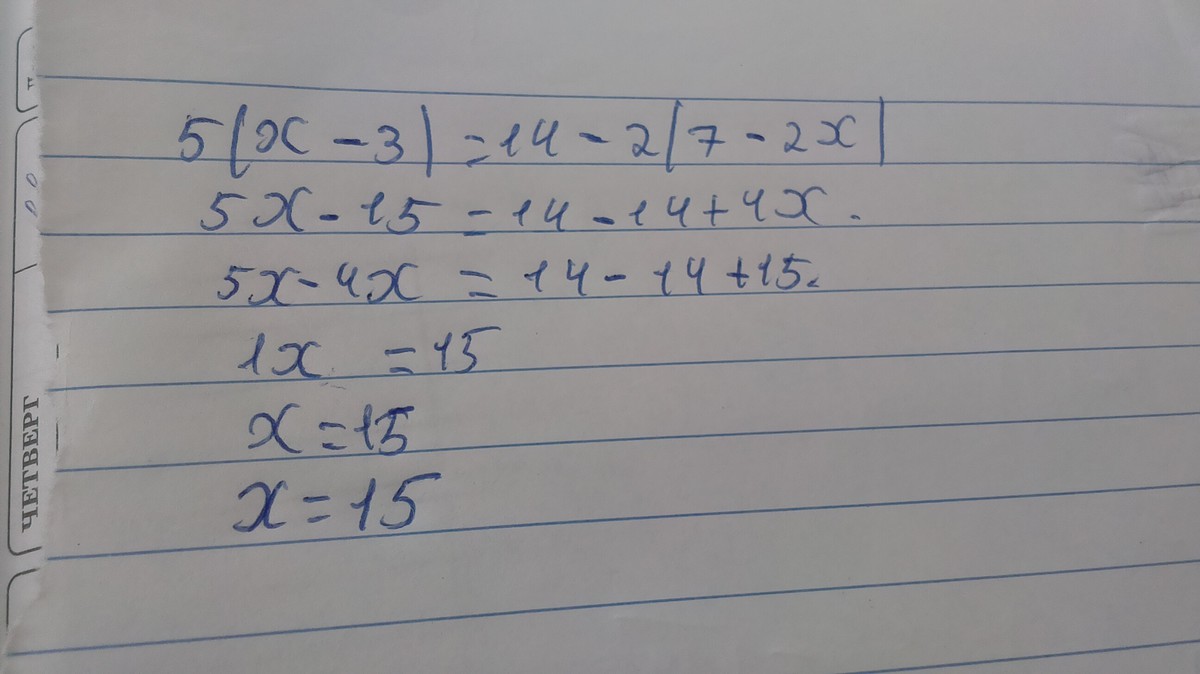 5(x - 3) = 14 - 2(7 - 2x)
5x - 15 = 14 - 14 + 4x.
5x - 4x = 14 - 14 + 15.
1x = 15
x = 15
x = 15
ЧЕТВЕРГ